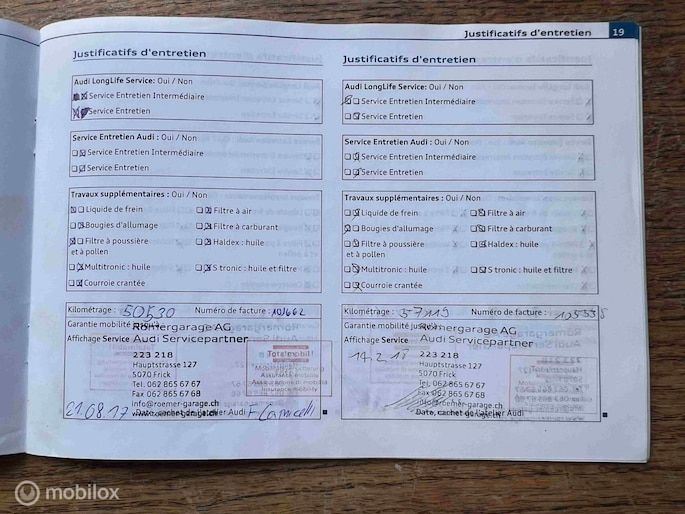 Justificatifs d'entretien 19
Justificatifs d'entretien
Audi LongLife Service: Oui / Non
Service Entretien Intermédiaire
Service Entretien
Service Entretien Audi : Oui / Non
Service Entretien Intermédiaire
Service Entretien
Travaux supplémentaires : Oui / Non
Liquide de frein Filtre à air
Bougies d'allumage Filtre à carburant
Filtre à poussière Haldex : huile
et à pollen
Multitronic : huile S tronic : huile et filtre
Courroie crantée
Kilométrage : 50530 Numéro de facture : 101662
Garantie mobilité
Römergarage AG
Affichage Service Audi Servicepartner
223 218
Hauptstrasse 127
5070 Frick
Tel. 062 865 67 67
Fax 062 865 67 68
info@roemer-garage.ch
www.roemer-garage.ch
Totalmobil!
Insurance mobility
21.08.17 Date, cachet de l'atelier Audi
Justificatifs d'entretien
Audi LongLife Service: Oui / Non
Service Entretien Intermédiaire
Service Entretien
Service Entretien Audi : Oui / Non
Service Entretien Intermédiaire
Service Entretien
Travaux supplémentaires : Oui / Non
Liquide de frein Filtre à air
Bougies d'allumage Filtre à carburant
Filtre à poussière Haldex : huile
et à pollen
Multitronic : huile S tronic : huile et filtre
Courroie crantée
Kilométrage : 57119 Numéro de facture :
Garantie mobilité
Römergarage AG
Affichage Service Audi Servicepartner
223 218
Hauptstrasse 127
5070 Frick
Tel. 062 865 67 67
Fax 062 865 67 68
info@roemer-garage.ch
www.roemer-garage.ch
Date, cachet de l'atelier Audi
mobilox